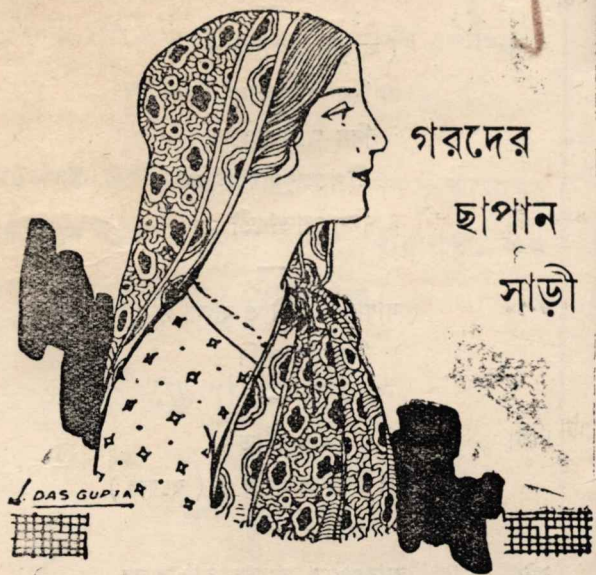 গরদের
ছাপান
সাড়ী
DAS GUPTA